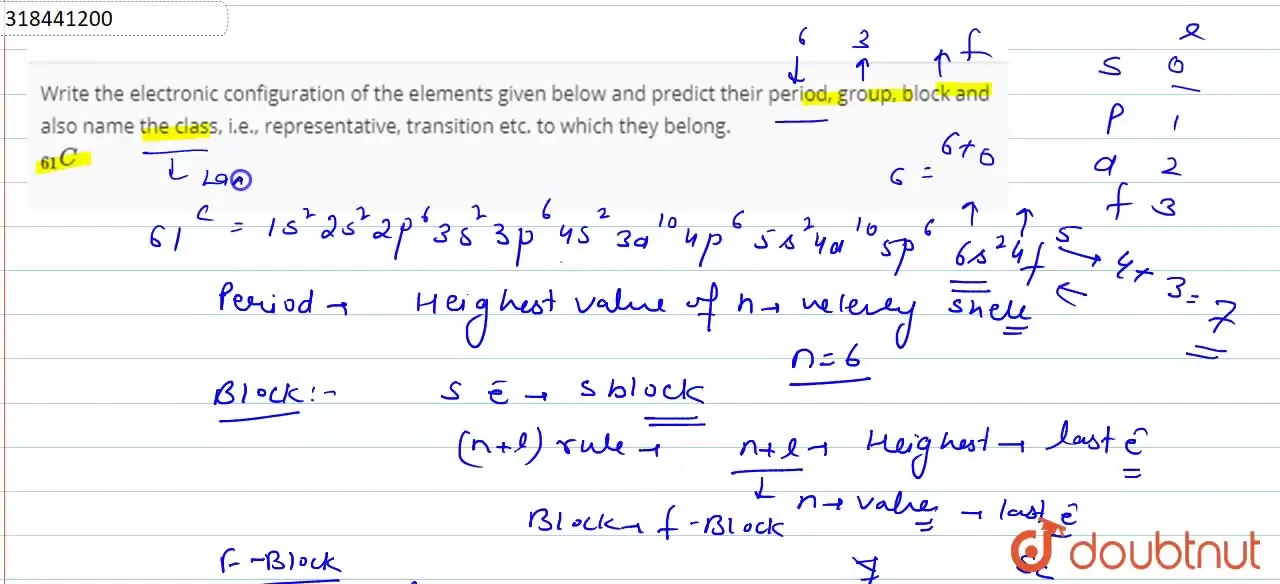 318441200
6 3 f
↓ ↑ ↑
Write the electronic configuration of the elements given below and predict their period, group, block and
also name the class, i.e., representative, transition etc. to which they belong.
₆₁C
↓ Lan
6 = 6+0
l
s 0
p 1
d 2
f 3
61^c = 1s² 2s² 2p⁶ 3s² 3p⁶ 4s² 3d¹⁰ 4p⁶ 5s² 4d¹⁰ 5p⁶ 6s² 4f⁵ → 4+3=7
Period → Heighest value of n → velenly shell
n=6
Block:- s ē → s block
(n+l) rule → n+l → Heighest → last ē
↓ n → value → last ē
Block → f-Block
F-Block
doubtnut